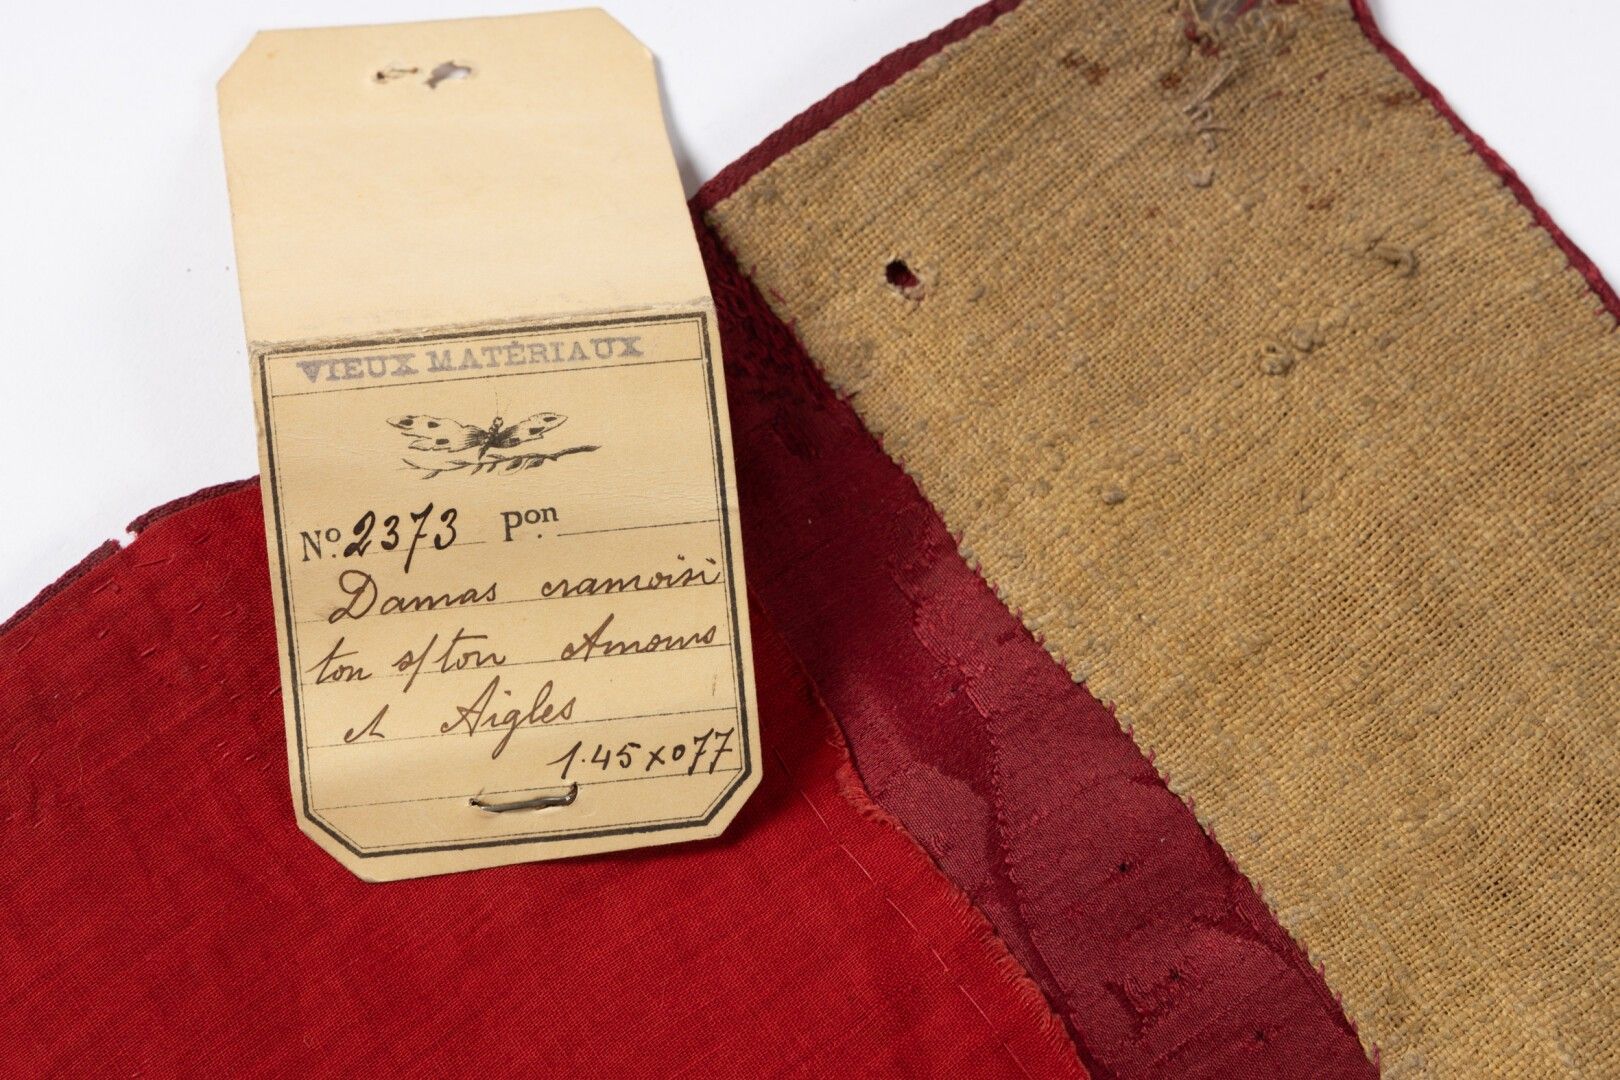 VIEUX MATÉRIAUX
No. 2373 Pon.
Damas cramoisi
ton s/ ton Amours
et Aigles
1.45 x 077